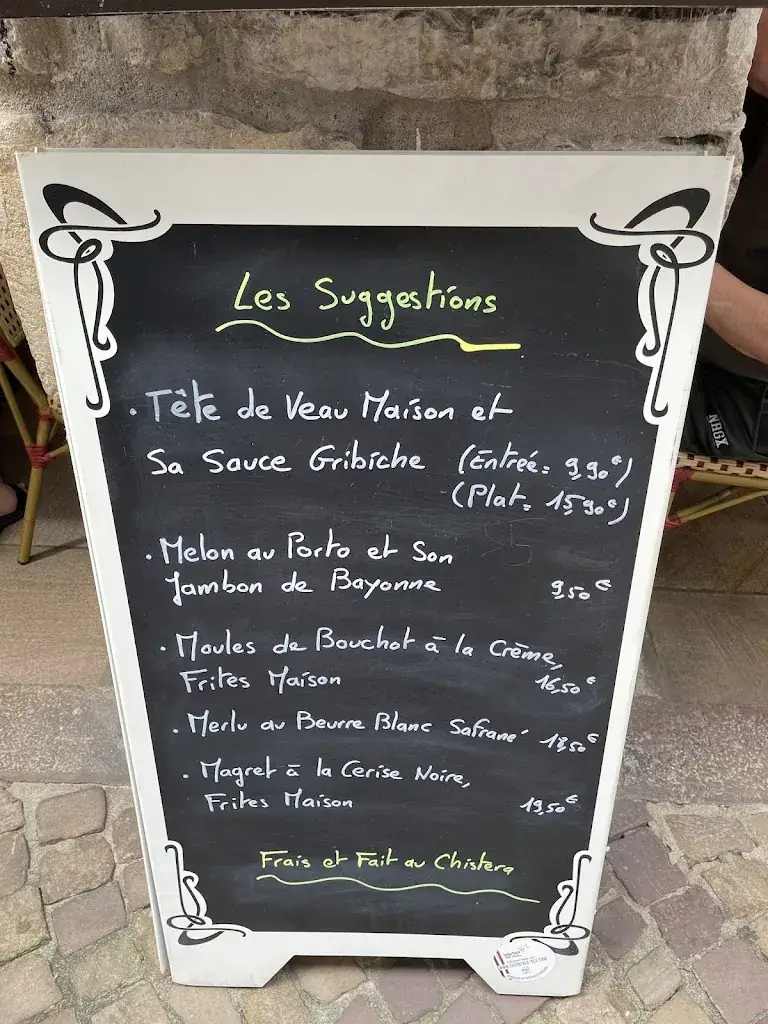 Les Suggestions
• Tête de Veau Maison et
Sa Sauce Gribiche (Entrée: 9,90€)
(Plat: 15,90€)
• Melon au Porto et Son
Jambon de Bayonne 9,50€
• Moules de Bouchot à la Crème,
Frites Maison 16,50€
• Merlu au Beurre Blanc Safrané 18,50€
• Magret à la Cerise Noire,
Frites Maison 19,50€
Frais et Fait au Chistera